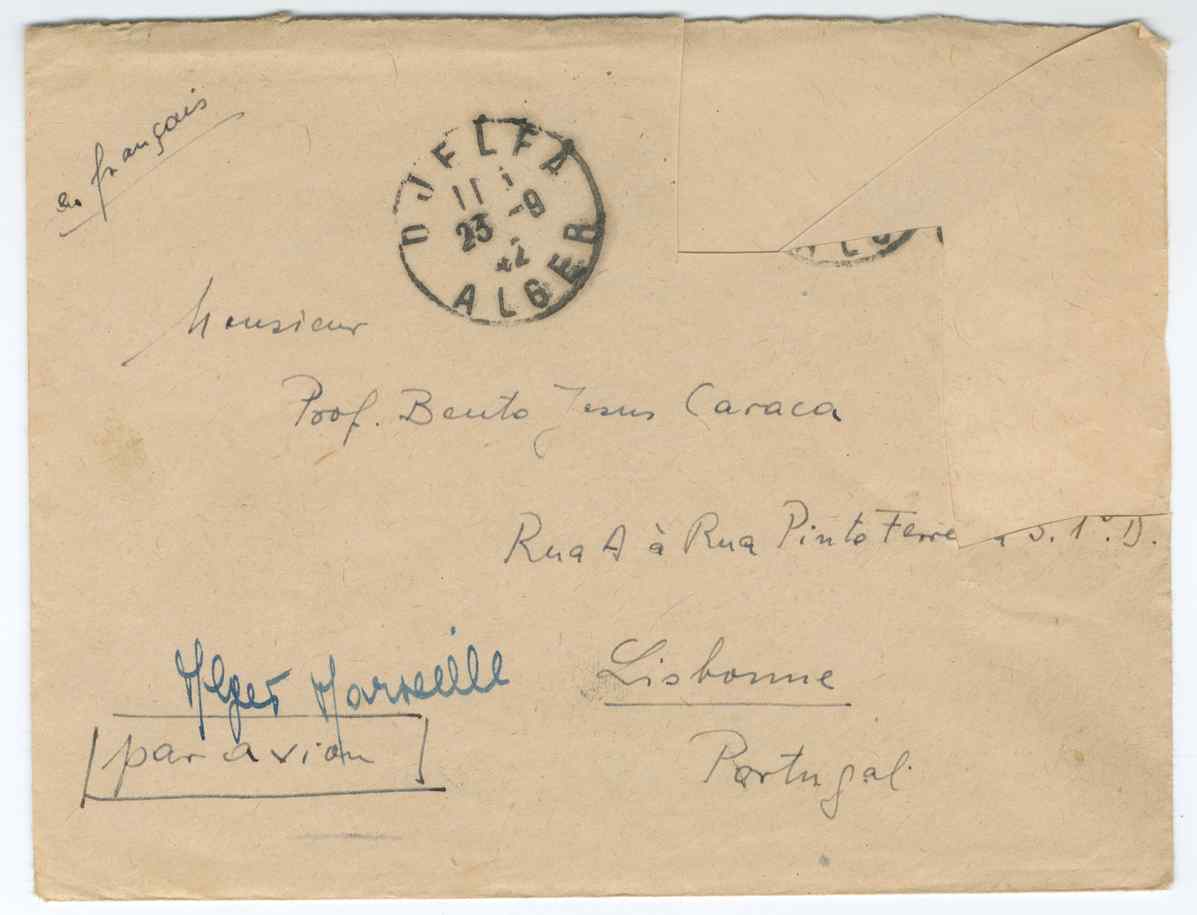 en français
DJELFA
11
23 -9
42
ALGER
ALG
Monsieur
Prof. Bento Jesus Caraca
Rua A à Rua Pinto Ferre 1º. D.
Lisbonne
Alger Marseille
par avion
Portugal